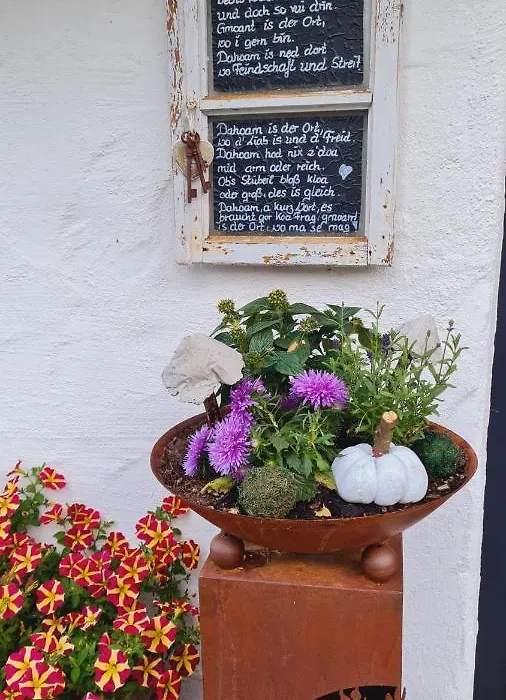 und doch so vui drin.
Gmoant is der Ort,
wo i gern bin.
Dahoam is ned dort
wo Feindschaft und Streit
Dahoam is der Ort,
wo d' Liab is und d' Freid.
Dahoam hod nix z'doa
mid arm oder reich.
Ob's Stüberl bloß kloa
oder groß, des is gleich
Dahoam, a kurz Wort, es
braucht gor koa Frag, gmoant
is der Ort, wo ma se mag